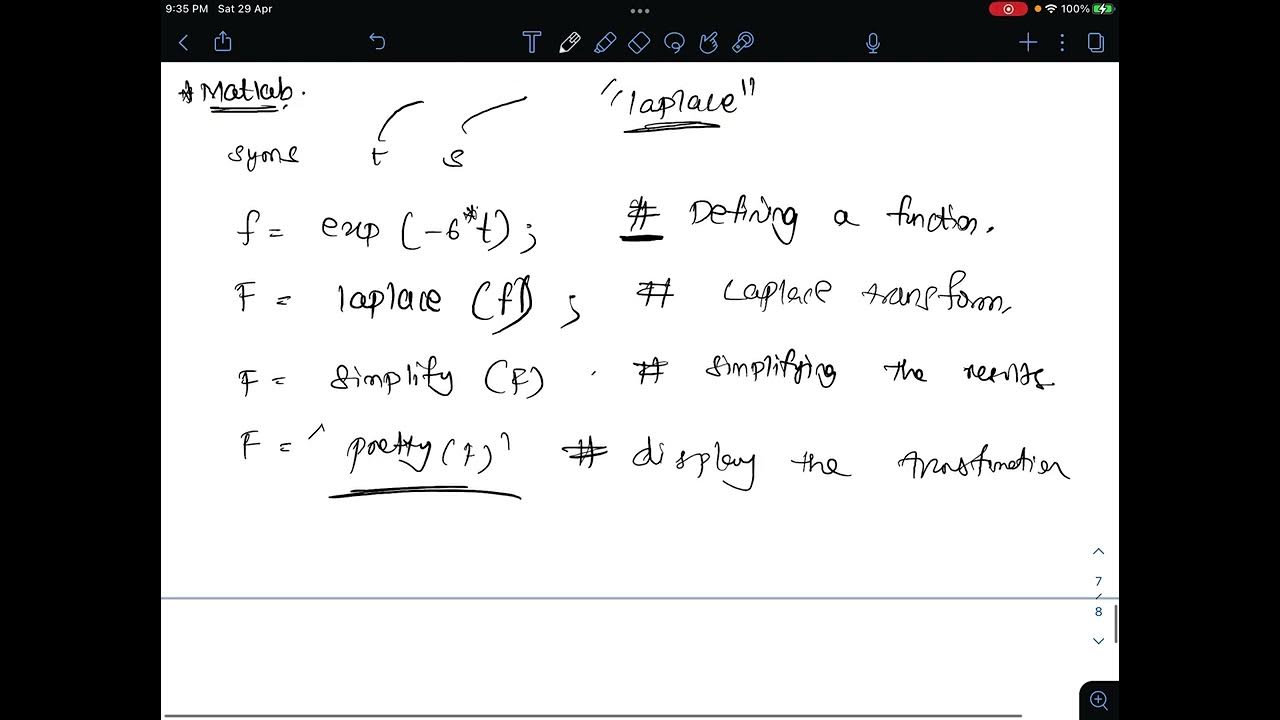 9:35 PM Sat 29 Apr
100%
* Matlab.
"laplace"
syms t s
f = exp (-6*t) ; # Defining a function.
F = laplace (f) ; # Laplace transform.
F = simplify (F) . # simplifying the results
F = ' pretty (F) ' # display the
7
/
8